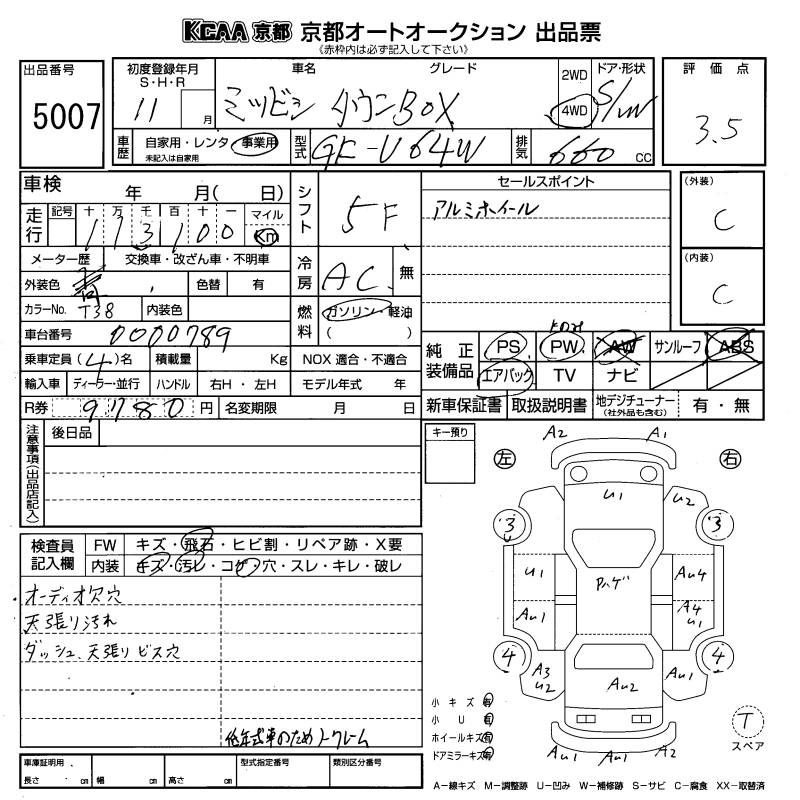 KCAA 京都 京都オートオークション 出品票
《赤枠内は必ず記入して下さい》
出品番号
5007
初度登録年月
S・H・R
11 月
車名 グレード
ミツビシ タウンBOX
2WD
4WD
ドア・形状
5/W
評価点
3.5
車歴
自家用・レンタ・事業用
未記入は自家用
型式
GF-U64W
排気
660 CC
車検 年 月( 日)
走行
記号 十 万 千 百 十 一 マイル
113100 Km
メーター歴 交換車・改ざん車・不明車
外装色 青 色替 有
カラーNo. T38 内装色
車台番号 0000789
乗車定員 (4)名 積載量 Kg
輸入車 ディーラー・並行 ハンドル 右H・左H
R券 9780 円 名変期限 月 日
シフト
5F
冷房
AC 無
燃料
ガソリン・軽油
( )
NOX 適合・不適合
モデル年式 年
セールスポイント
アルミホイール
(外装)
C
(内装)
C
純正装備品
PS PW AW サンルーフ ABS
エアバッグ TV ナビ
新車保証書 取扱説明書 地デジチューナー
(社外品も含む)
有・無
注意事項(出品店記入)
後日品
キー預り
左 右
A2 A1
U1 U2
3 3
U1 Au4
Au1 A4
U1
4 4
A3
U2
Au2 Au1
A1 Au1 A2
検査員記入欄
FW キズ・飛石・ヒビ割・リペア跡・X要
内装 キズ・汚レ・コゲ・穴・スレ・キレ・破レ
オーディオ欠穴
天張り汚れ
ダッシュ、天張りビス穴
低年式車のためノークレーム
小キズ 有
小U 有
ホイールキズ 有
ドアミラーキズ 有
T
スペア
車庫証明用
長さ cm 幅 cm 高さ cm
型式指定番号 類別区分番号
A−線キズ M−調整跡 U−凹み W−補修跡 S−サビ C−腐食 XX−取替済